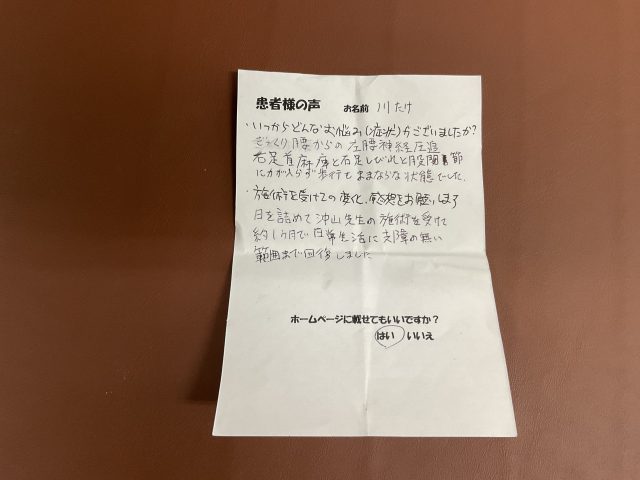 患者様の声 お名前 川たけ
・いつからどんなお悩み(症状)がございましたか?
ぎっくり腰からの左腰神経圧迫
右足首麻痺と右足しびれと股関節
に力が入らず歩行もままならな状態でした。
・施術を受けての変化、感想をお願いします
日を詰めて沖山先生の施術を受けて
約1ヶ月で日常生活に支障の無い
範囲まで回復しました
ホームページに載せてもいいですか?
はい いいえ